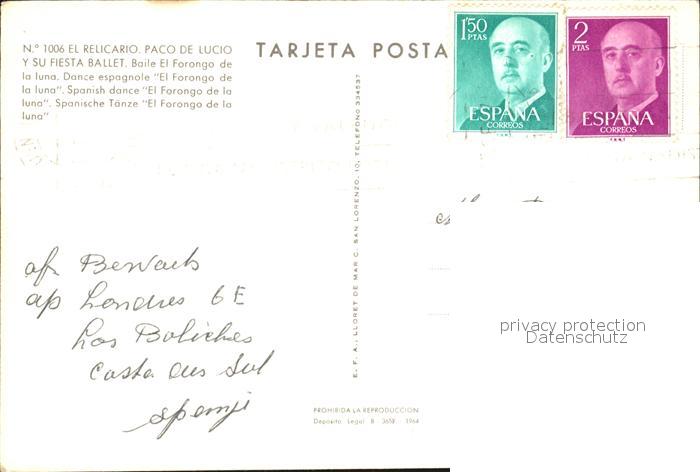 N.º 1006 EL RELICARIO. PACO DE LUCIO
Y SU FIESTA BALLET. Baile El Forongo de
la luna. Dance espagnole "El Forongo de
la luna". Spanish dance "El Forongo de la
luna". Spanische Tänze "El Forongo de la
luna"
TARJETA POSTA
1'50
PTAS
ESPAÑA
CORREOS
2
PTAS
ESPAÑA
CORREOS
E. F. A., LLORET DE MAR C. SAN LORENZO, 10, TELEFONO 334537
ap Londres 6E
Los Boliches
Costa del Sol
privacy protection
Datenschutz
PROHIBIDA LA REPRODUCCION
Deposito Legal B 1964